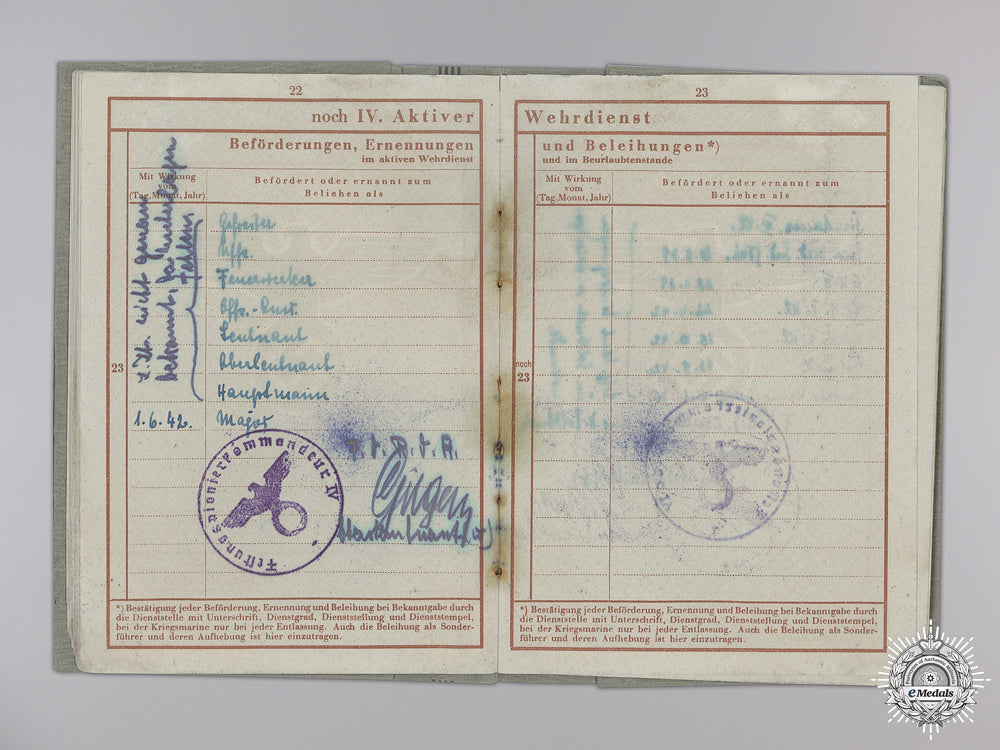 22
noch IV. Aktiver
Beförderungen, Ernennungen
im aktiven Wehrdienst
Mit Wirkung
vom
(Tag, Monat, Jahr)
Befördert oder ernannt zum
Beliehen als
z. Zt. nicht genau
bekannt, da Unterlagen
fehlen
Gefreiter
Uffz.
Feuerwerker
Leutnant
Oberleutnant
23
Hauptmann
1.6.42.
Major
Festungspionierkommandeur IV
23
Wehrdienst
und Beleihungen*)
und im Beurlaubtenstande
Mit Wirkung
vom
(Tag, Monat, Jahr)
Befördert oder ernannt zum
Beliehen als
noch
23
*) Bestätigung jeder Beförderung, Ernennung und Beleihung bei Bekanntgabe durch
die Dienststelle mit Unterschrift, Dienstgrad, Dienststellung und Dienststempel,
bei der Kriegsmarine nur bei jeder Entlassung. Auch die Beleihung als Sonder-
führer und deren Aufhebung ist hier einzutragen.
*) Bestätigung jeder Beförderung, Ernennung und Beleihung bei Bekanntgabe durch
die Dienststelle mit Unterschrift, Dienstgrad, Dienststellung und Dienststempel,
bei der Kriegsmarine nur bei jeder Entlassung. Auch die Beleihung als Sonder-
führer und deren Aufhebung ist hier einzutragen.
eMedals